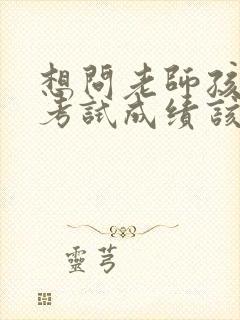 想問老師孩
考試成績該
靈芎